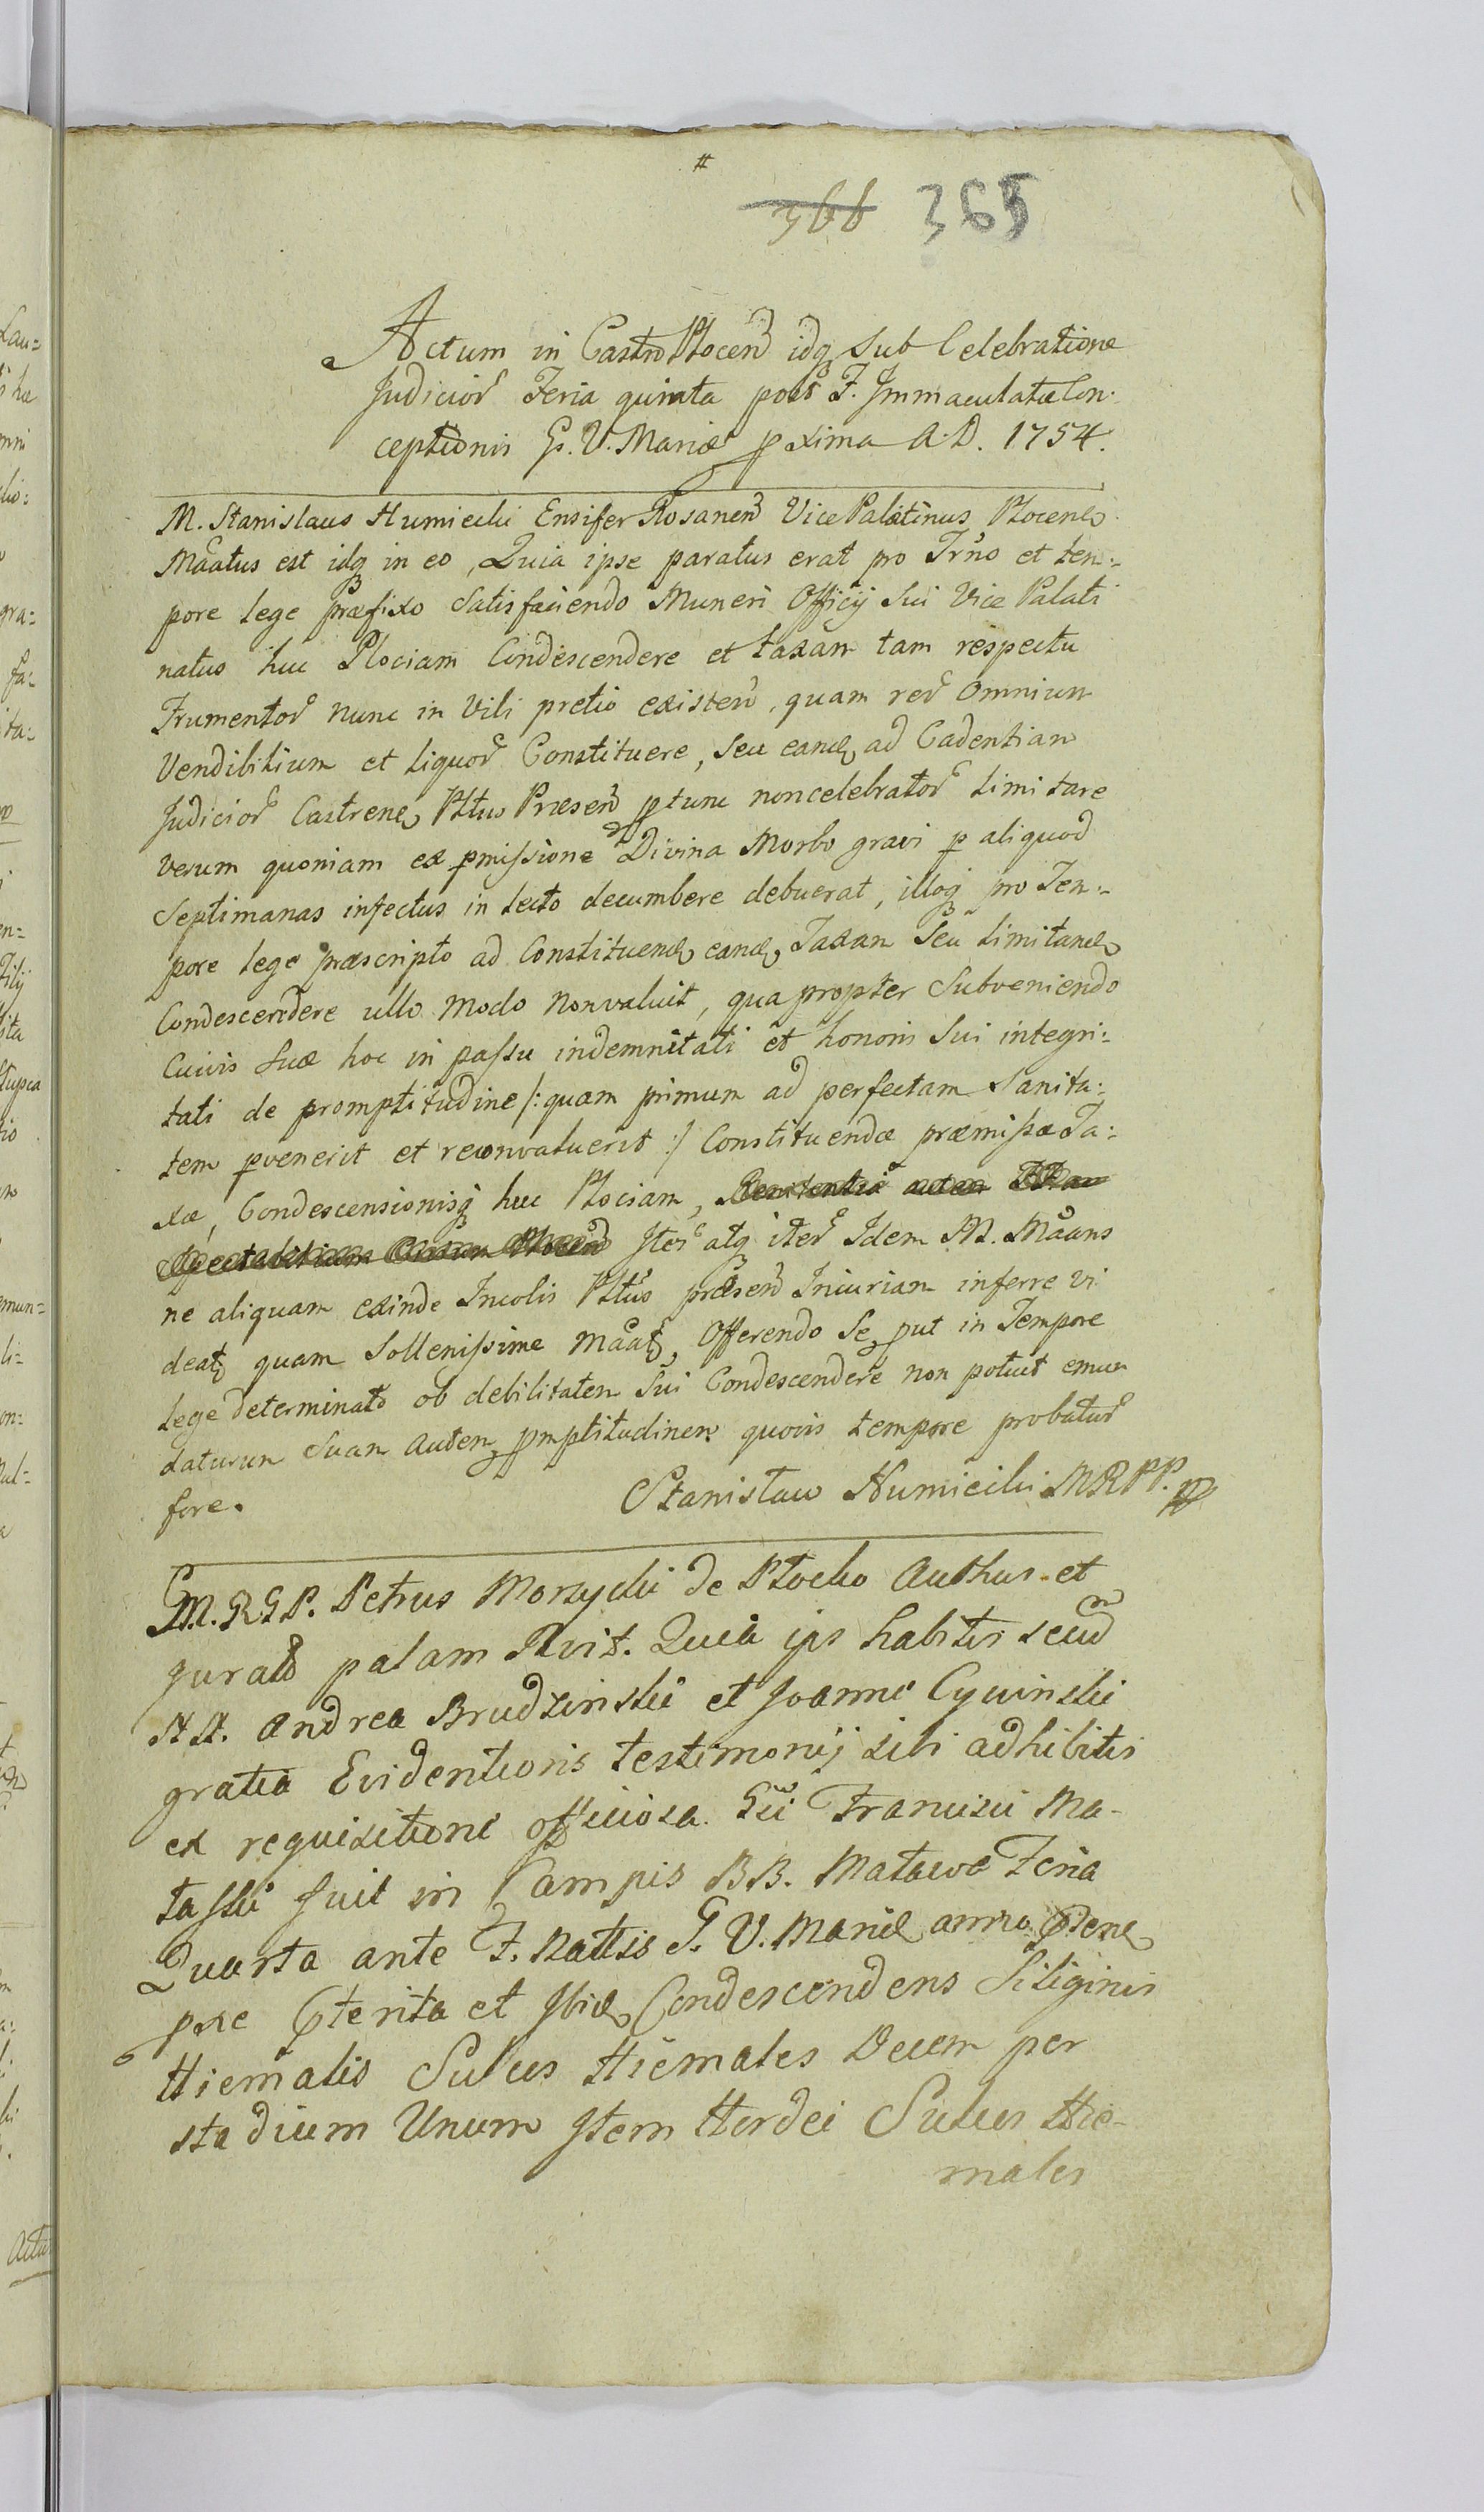 #
366 365
Actum in Castro Plocen idq sub Celebratione
Judicior Feria quinta post F. Immaculatæ Con:
ceptionis G. V. Mariæ pxima A. D. 1754.
M. Stanislaus Humiecki Ensifer Rosanen Vice Palatinus Plocens
Maatus est idq in eo, Quia ipse paratus erat pro Trno et tem:
pore lege præfixo satisfaciendo Muneri Officij sui Vice Palati
natus huc Plociam Condescendere et taxam tam respectu
Frumentor nunc in vili pretio existen, quam rer omnium
Vendibilium et liquor Constituere, seu eand ad Cadentiam
Judicior Castrens Pltus Præsen ptunc noncelebrator limitare
verum quoniam ex pmissione Divina Morbo gravi p aliquod
septimanas infectus in lecto decumbere debuerat, illoq pro Tem:
pore lege præscripto ad Constituend eand Taxam seu limitand
Condescendere ullo modo nonvaluit, qua propter subveniendo
Cuivis suæ hoc in passu indemnitati et honoris sui integri:
tati de promptitudine /: quam primum ad perfectam sanita:
tem pvenerit et reconvaluerit :/ Constituendæ præmissæ Ta:
xæ, Condescensionisq huc Plociam,
Iter atq iter Idem M. Maans
ne aliquam exinde Incolis Pltus præsen Iniuriam inferre vi
deatq quam sollenissime Maatq, Offerendo se put in Tempore
lege determinato ob debilitatem sui Condescendere non potuit emen
daturum suam autem pmptitudinem quovis tempore probatur
fore.
Stanisław Humiecki MRPP. mp
M. RGP. Petrus Morzycki de Płocko Authus et
jurats palam Rvit. Quia ips habitis secum
NN. Andrea Brudzinski et Joanne Cywinski
gratia Evidentioris testimonij sibi adhibitis
ex requisitione officiosa Gsi Francisci Ma-
tasski fuit in Campis BB. Matawe Feria
Quarta ante F. Nattis G. V. Mariæ anno Psene
pxe Pterita et Ibid Condescendens Siliginis
Hiemalis Sulcus Hiemales Decem per
stadium Unum Item Hordei Sulcus Hie-
males